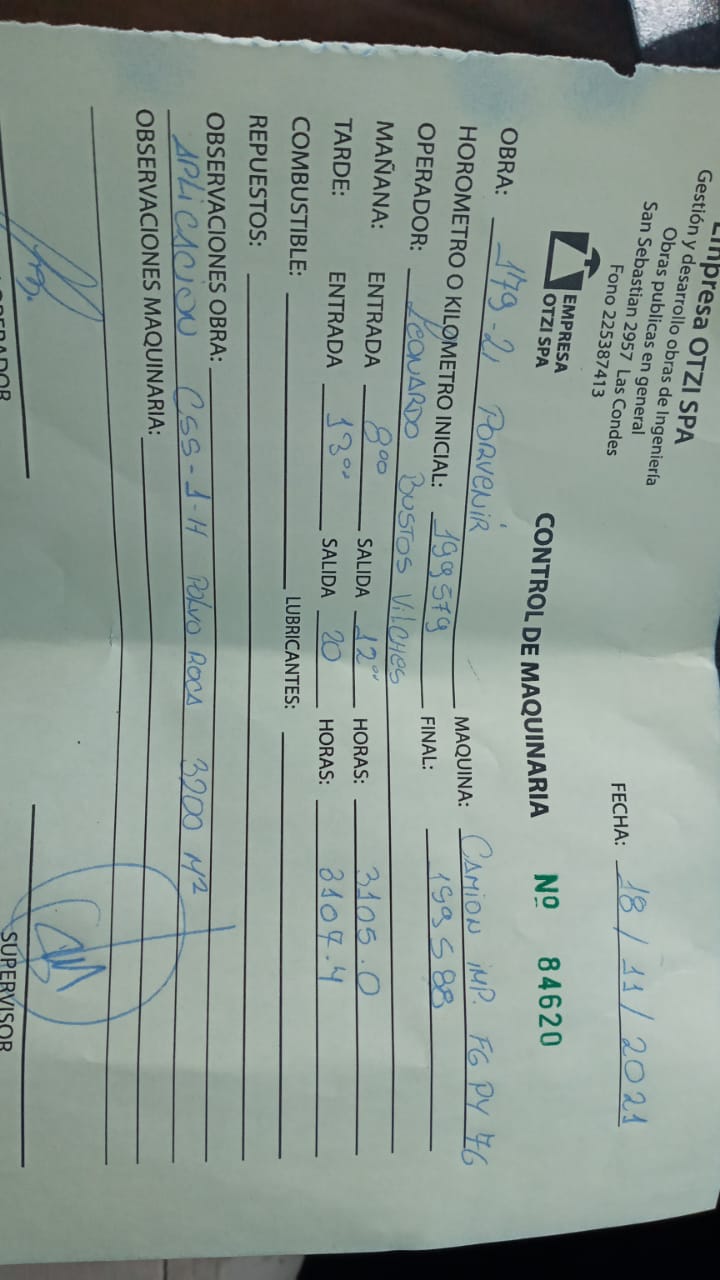 Empresa OTZI SPA
Gestión y desarrollo obras de Ingeniería
Obras publicas en general
San Sebastian 2957 Las Condes
Fono 225387413
EMPRESA
OTZI SPA
FECHA: 18 / 11 / 2021
CONTROL DE MAQUINARIA Nº 84620
OBRA: 179-21 PORVENIR MAQUINA: CAMION IMP. FG PY 76
HOROMETRO O KILOMETRO INICIAL: 199579 FINAL: 199588
OPERADOR: LEONARDO BUSTOS VILCHES
MAÑANA: ENTRADA 8°° SALIDA 12°° HORAS: 3105.0
TARDE: ENTRADA 13°° SALIDA 20 HORAS: 3107.4
COMBUSTIBLE: LUBRICANTES:
REPUESTOS:
OBSERVACIONES OBRA:
APLICACION CSS-1-H POLVO ROCA 3200 M²
OBSERVACIONES MAQUINARIA:
OPERADOR SUPERVISOR